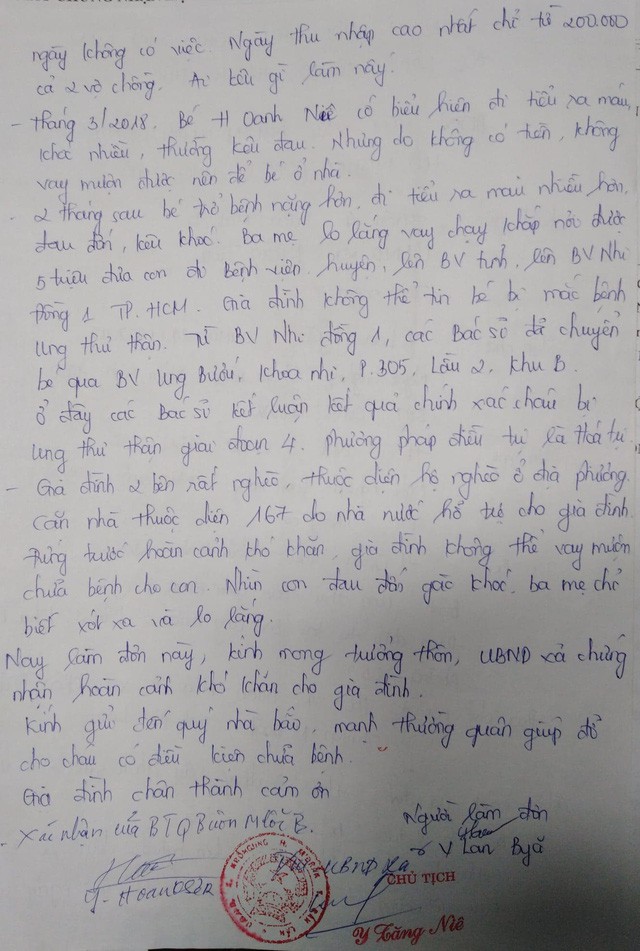 ngày không có việc. Ngày thu nhập cao nhất chỉ từ 200.000
cả 2 vợ chồng. Ai kêu gì làm nấy.
- Tháng 3/2018. Bé H Oanh Niê có biểu hiện đi tiểu ra máu,
khóc nhiều, thường kêu đau. Nhưng do không có tiền, không
vay mượn được nên để bé ở nhà.
- 2 tháng sau bé trở bệnh nặng hơn, đi tiểu ra máu nhiều hơn,
đau đớn, kêu khóc. Ba mẹ lo lắng vay chạy khắp nơi được
5 triệu đưa con đo bệnh viện huyện, lên BV tỉnh, lên BV Nhi
Đồng 1 TP. HCM. Gia đình không thể tin bé bị mắc bệnh
ung thư thận. Từ BV Nhi đồng 1, các Bác sỡ đã chuyển
bé qua BV Ung Bướu, khoa nhi, P.305, Lầu 2, Khu B.
Ở đây các Bác sỡ kết luận kết quả chính xác cháu bị
ung thư thận giai đoạn 4. phương pháp điều trị là Hoá trị.
- Gia đình 2 bên rất nghèo, thuộc diện hộ nghèo ở địa phương.
Căn nhà thuộc diện 167 do nhà nước hổ trợ cho già đình.
Đứng trước hoàn cảnh khó khăn, già đình không thể vay mượn
chữa bệnh cho con. Nhìn con đau đớn gào khóc, ba mẹ chỉ
biết xót xa và lo lắng.
Nay làm đơn này, kính mong trưởng thôn, UBND xã chứng
nhận hoàn cảnh khó khăn cho già đình.
Kính gửi đến quý nhà báo, mạnh thường quân giúp đỡ
cho cháu có điều kiện chữa bệnh.
Gia đình chân thành cảm ơn
Người làm đơn
Y Lan Byă
- Xác nhận của BTQ Buôn Mlốc B.
UBND Xã
CHỦ TỊCH
Y Lăng Niê